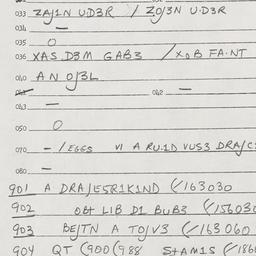 033 ZAJ1N UD3R / ZO/3N U·D3R
034 —
035 O
036 XAS D3M GAB3 / XOB FA·NT
040 AN O/3L
042 —
043 —
050 O
070 — / EGGS VI A RU·1D VUS3 DRA/C
080 —
901 A DRA/ESR1K1ND (/163030
902 OBT LIB D1 BUB3 (/15603
903 BE/TN A TO/V3 (/163060
904 QT (900 (988 STAM1S (/186